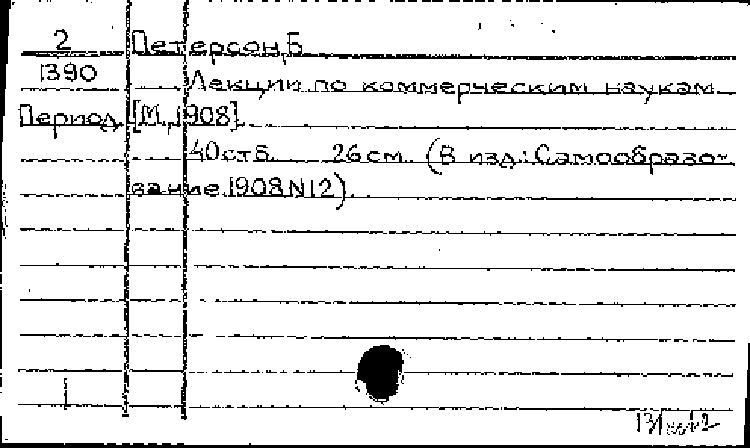 2 Петерсон, Б.
1390 Лекции по коммерческим наукам
Период. [М., 1908].
40стб. 26см. (В изд.: Самообразо-
вание. 1908 N12).
1